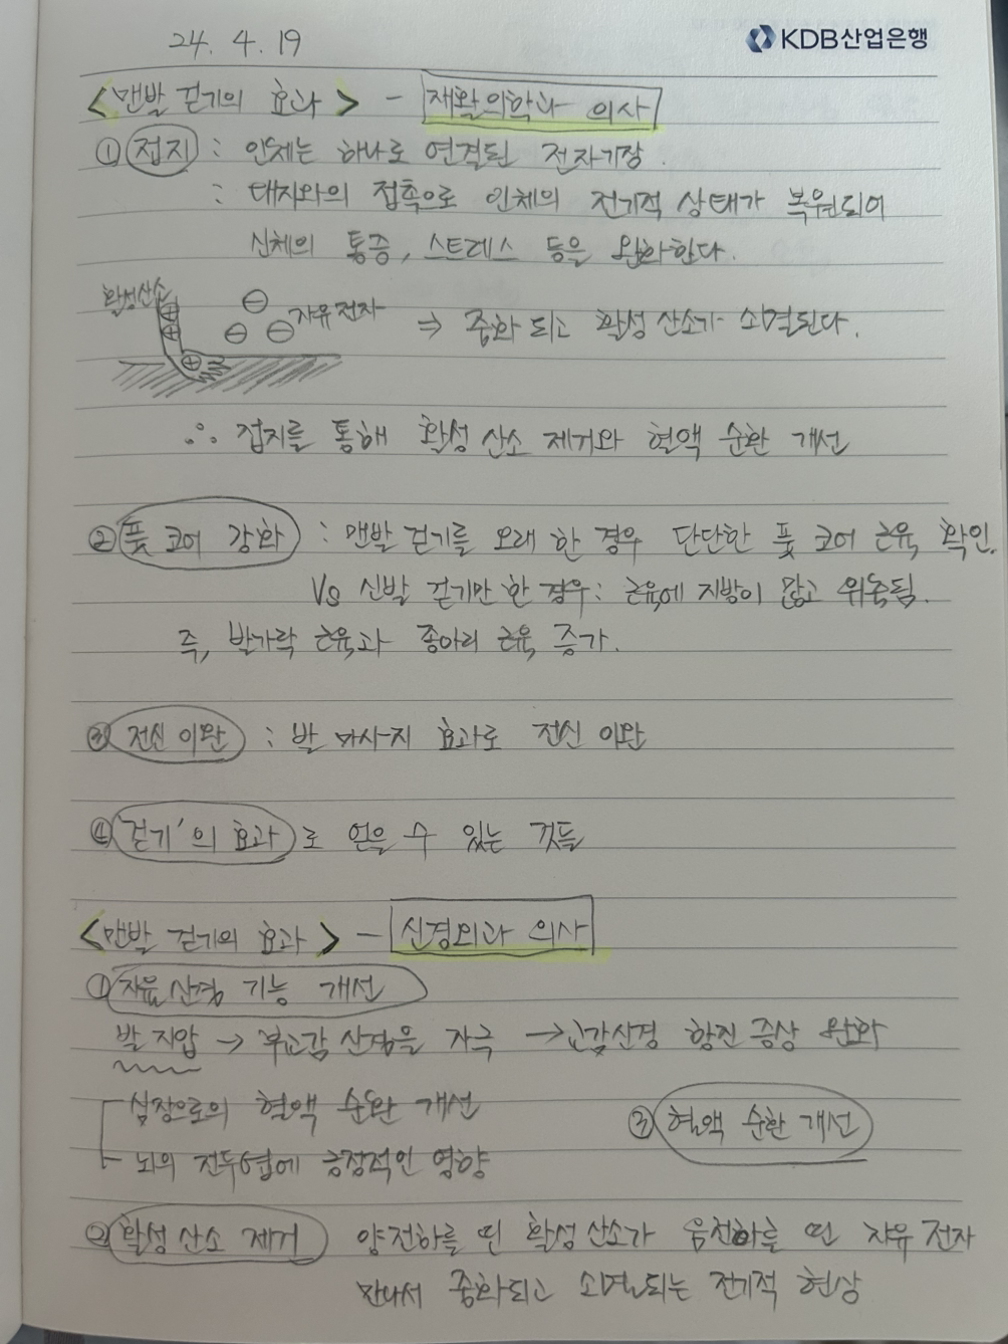 24. 4. 19
KDB산업은행
<맨발 걷기의 효과> - 재활의학과 의사
① 접지 : 인체는 하나로 연결된 전자기장.
: 대지와의 접촉으로 인체의 전기적 상태가 복원되어
신체의 통증, 스트레스 등을 완화한다.
활성산소
자유전자 ⇒ 중화되고 활성산소가 소멸된다.
∴ 접지를 통해 활성산소 제거와 혈액 순환 개선
② 풋 코어 강화 : 맨발 걷기를 오래 한 경우 단단한 풋 코어 근육 확인.
Vs 신발 걷기만 한 경우: 근육에 지방이 많고 위축됨.
즉, 발가락 근육과 종아리 근육 증가.
③ 전신 이완 : 발 마사지 효과로 전신 이완
④ '걷기'의 효과로 얻을 수 있는 것들
<맨발 걷기의 효과> - 신경외과 의사
① 자율신경 기능 개선
발 지압 → 부교감 신경을 자극 → 교감신경 항진 증상 완화
심장으로의 혈액 순환 개선
③ 혈액 순환 개선
뇌의 전두엽에 긍정적인 영향
② 활성산소 제거 양전하를 띤 활성산소가 음전하를 띤 자유전자
만나서 중화되고 소멸되는 전기적 현상